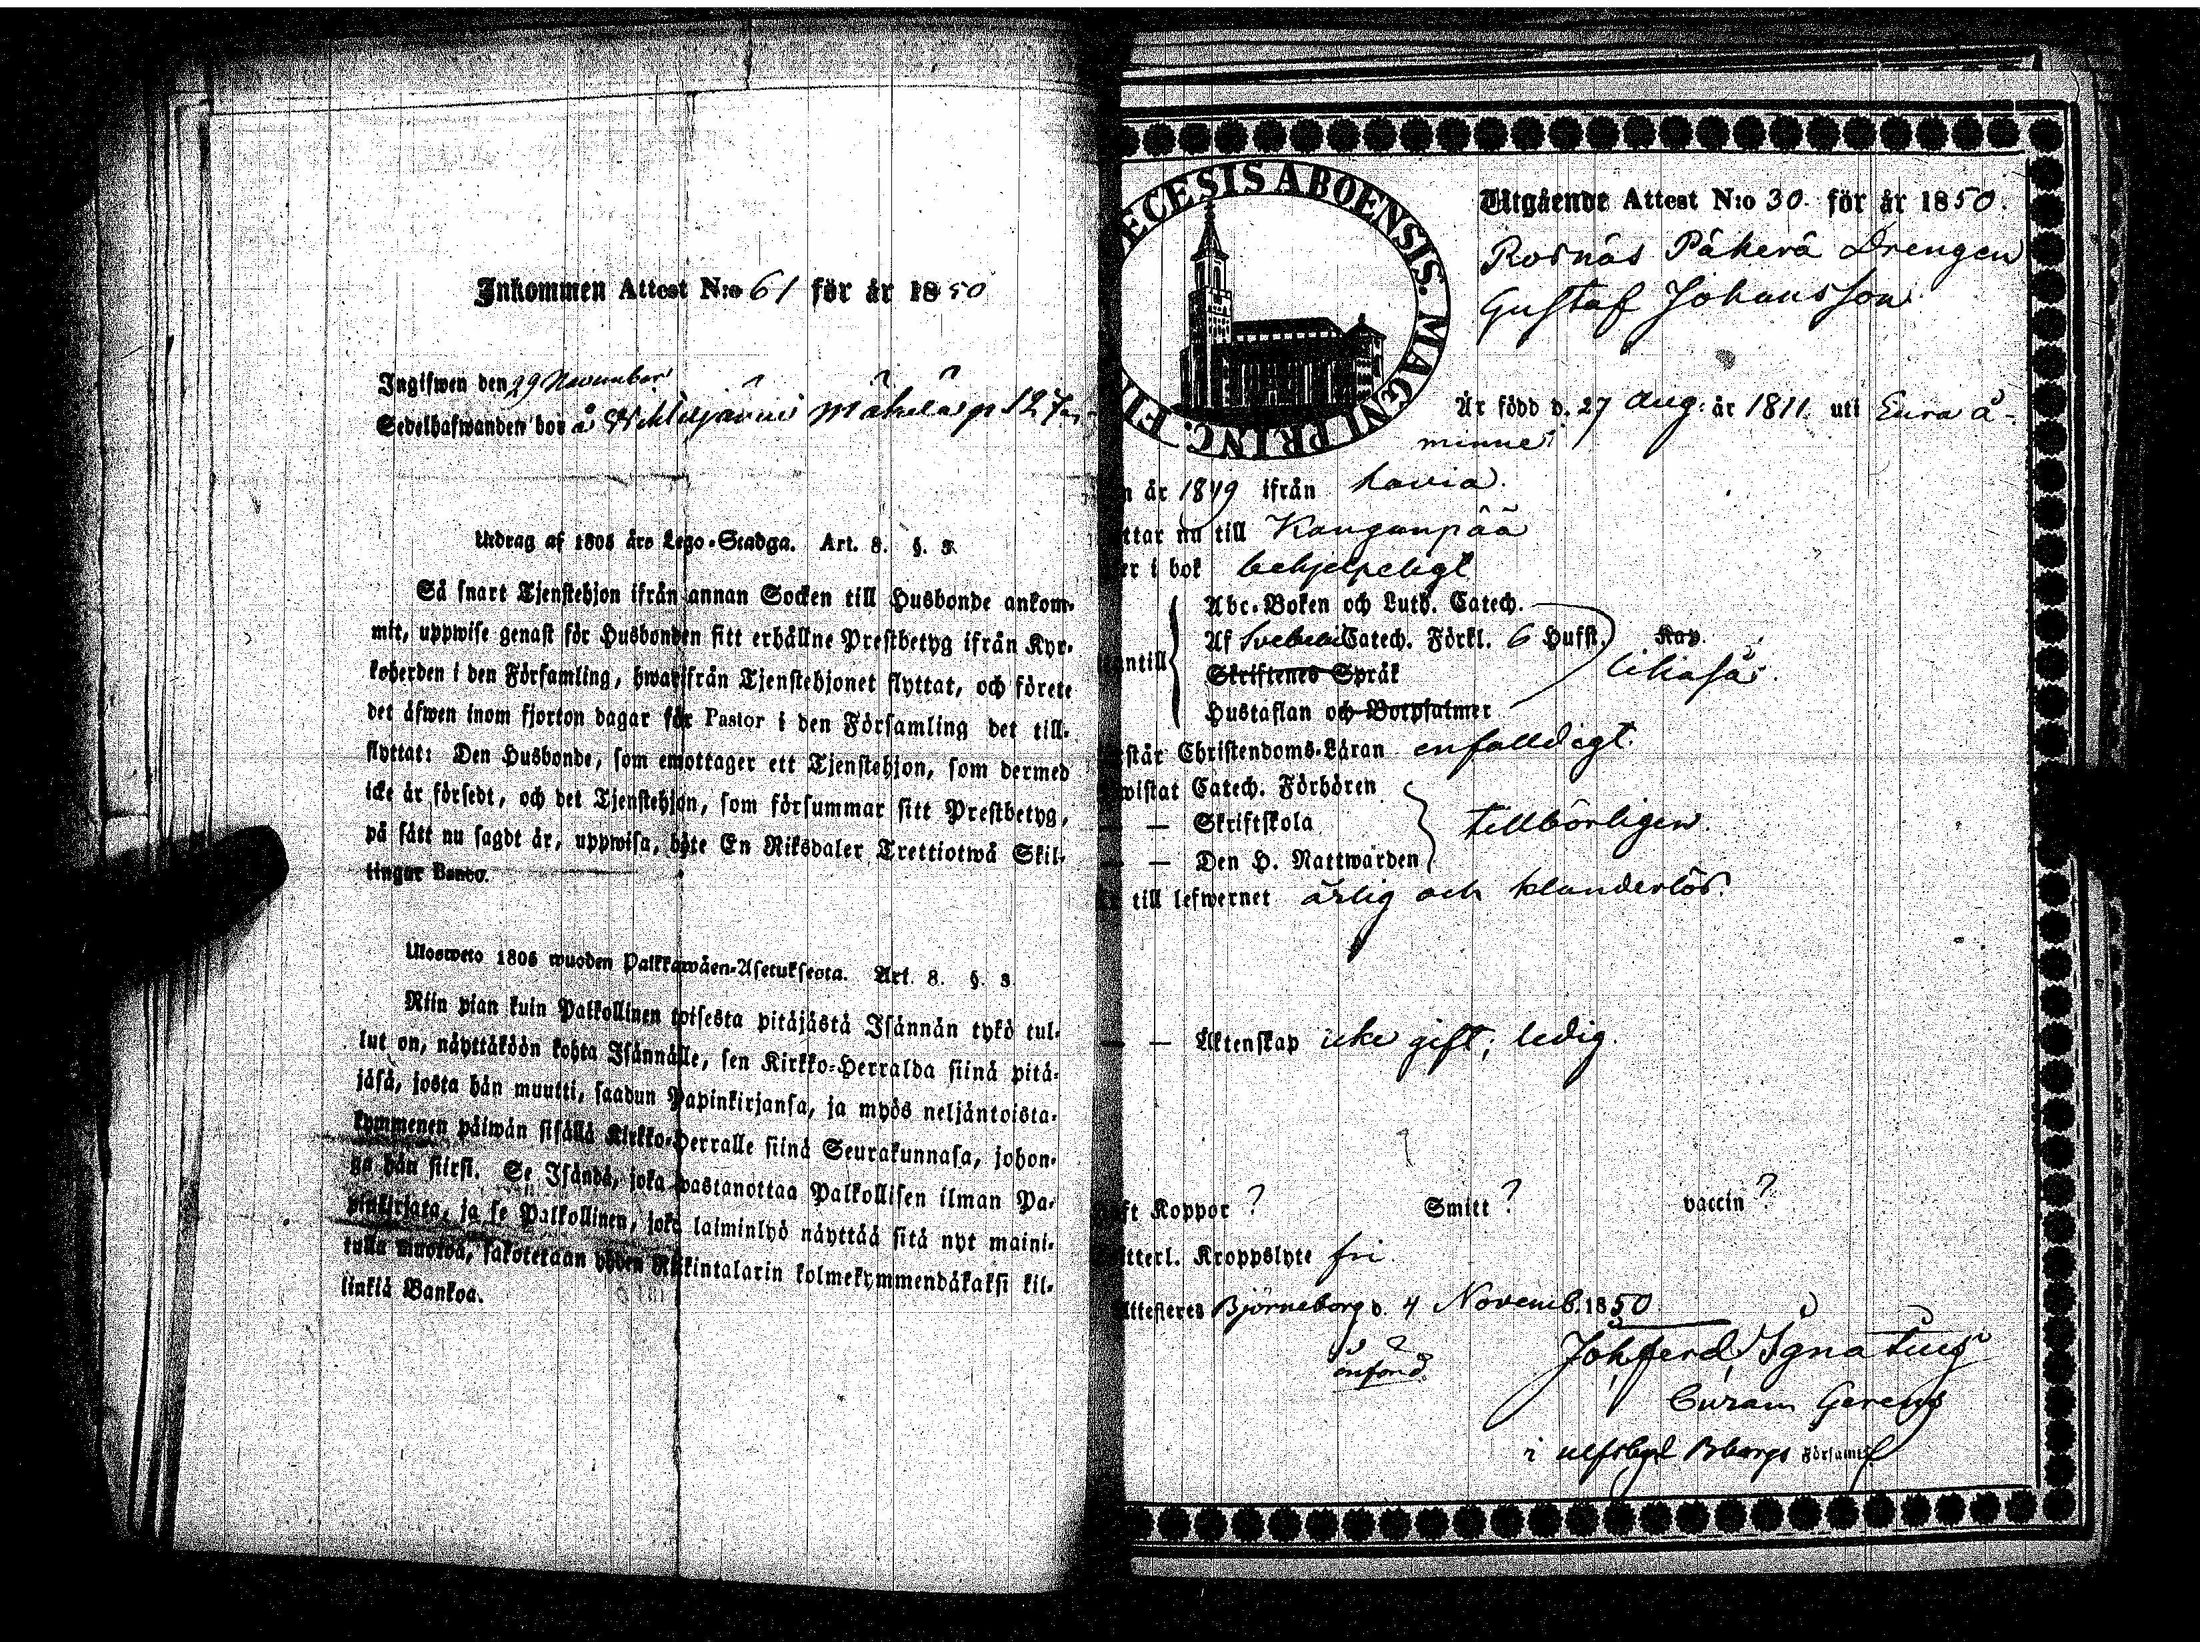 Inkommen Attest N:o 61 för år 1850
Ingifwen den 29 November
Sedelhafwanden bor å
Utdrag af 1805 års Lego-Stadga. Art. 8. §. 3.
Så snart Tjenstehjon ifrån annan Socken till Husbonde ankom-
mit, uppwise genast för Husbonden sitt erhållne Prestbetyg ifrån Kyr-
koherden i den Församling, hwarifrån Tjenstehjonet flyttat, och förete
det äfwen inom fjorton dagar för Pastor i den Församling det till-
flyttat: Den Husbonde, som emottager ett Tjenstehjon, som dermed
icke är försedt, och det Tjenstehjon, som försummar sitt Prestbetyg,
på sätt nu sagdt är, uppwisa, böte En Riksdaler Trettiotwå Skil-
lingar Banco.
Ulosweto 1805 wuoden Palkkawäen-Asetuksesta. Art. 8. §. 3.
Niin pian kuin Palkollinen toisesta pitäjästä Isännän tykö tul-
lut on, näyttäköön kohta Isännälle, sen Kirkko-Herralda siinä pitä-
jäsä, josta hän muutti, saadun Papinkirjansa, ja myös neljäntoista-
kymmenen päiwän sisällä Kirkko-Herralle siinä Seurakunnasa, johon-
ga hän siirsi. Se Isändä, joka wastanottaa Palkollisen ilman Pa-
pinkirjata, ja se Palkollinen, joka laiminlyö näyttää sitä nyt maini-
tulla muotoa, sakotetaan yhden Riikintalarin kolmekymmendäkaksi kil-
linkiä Bankoa.
ECESIS ABOENSIS. MAGNI PRINC. FI
Utgående Attest N:o 30 för år 1850.
Rosnäs Påkerä Drengen
Gustaf Johansson
Är född d. 27 Aug: år 1811. uti Eura å-
minne
n år 1849 ifrån Lavia.
ttar nu till Kanganpää
er i bok behjelpeligt
antill Abc-Boken och Luth. Catech.
Af Svebelii Catech. Förkl. 6 Hufst. Kap.
Skriftenes Språk likaså.
Hustaflan och Botpsalmer
står Christendoms-Läran enfalldigt.
wistat Catech. Förhören
— — Skriftskola tillbörligen.
— — Den H. Nattwarden
till lefwernet ärlig och klanderlös.
— — Äktenskap icke gift; ledig.
ft Koppor ? Smitt ? vaccin ?
tterl. Kroppslyte fri
Attesteres Björneborg d. 4 Novemb. 1850
Joh: Ferd. Ignatius
Curam Gerens
i Ulfsby Bborgs Församl.